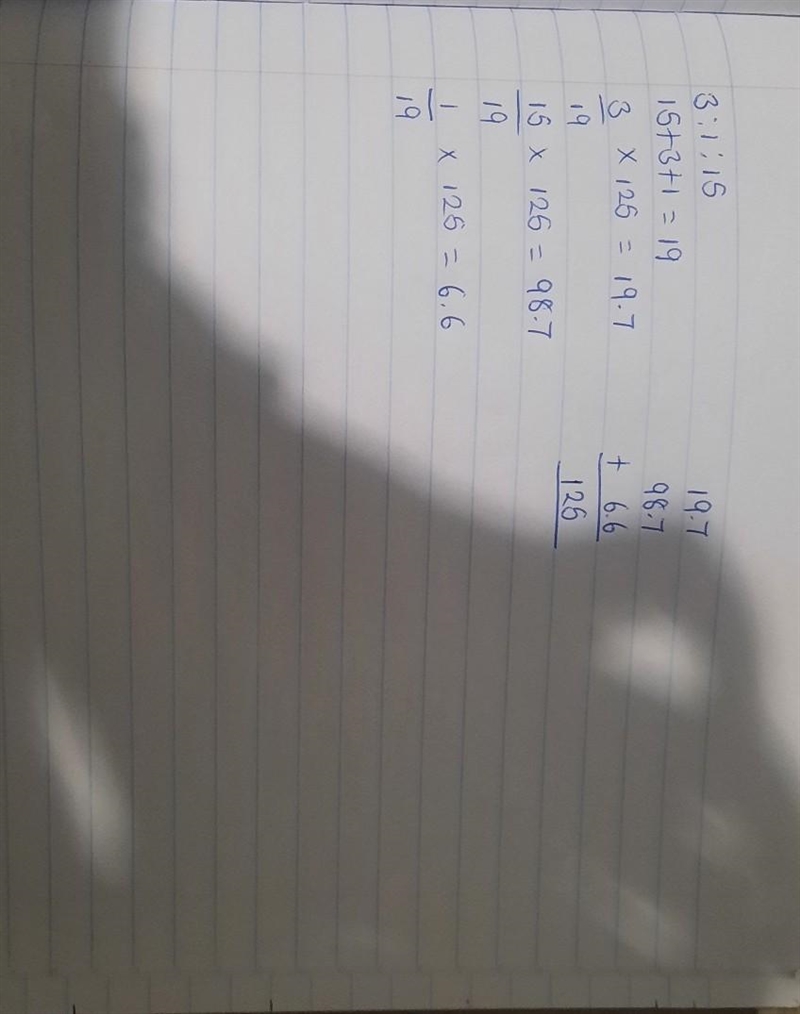 3:1:15
15+3+1 = 19
3/19 × 125 = 19.7
15/19 × 125 = 98.7
1/19 × 125 = 6.6
19.7
98.7
+ 6.6
125